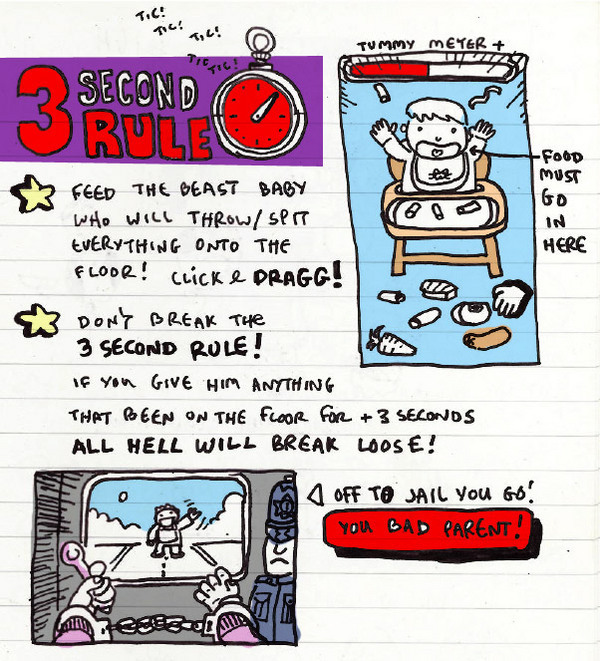 TIC!
TIC!
TIC!
TIC
TIC!
3 SECOND
RULE
TUMMY METER +
FOOD
MUST
GO
IN
HERE
FEED THE BEAST BABY
WHO WILL THROW/SPIT
EVERYTHING ONTO THE
FLOOR! CLICK & DRAGG!
DON'T BREAK THE
3 SECOND RULE!
IF YOU GIVE HIM ANYTHING
THAT BEEN ON THE FLOOR FOR + 3 SECONDS
ALL HELL WILL BREAK LOOSE!
OFF TO JAIL YOU GO!
YOU BAD PARENT!